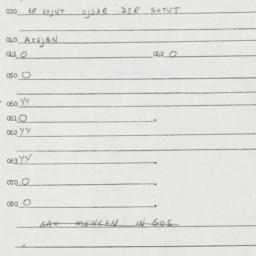 030 ER VOJNT OJDER DER STTUT
040 ACEJGN
041 O 042 O
050 O
060 YY
061 O
062 YY
063 YY
070 O
080 O
GAH MENGEN IN GOS